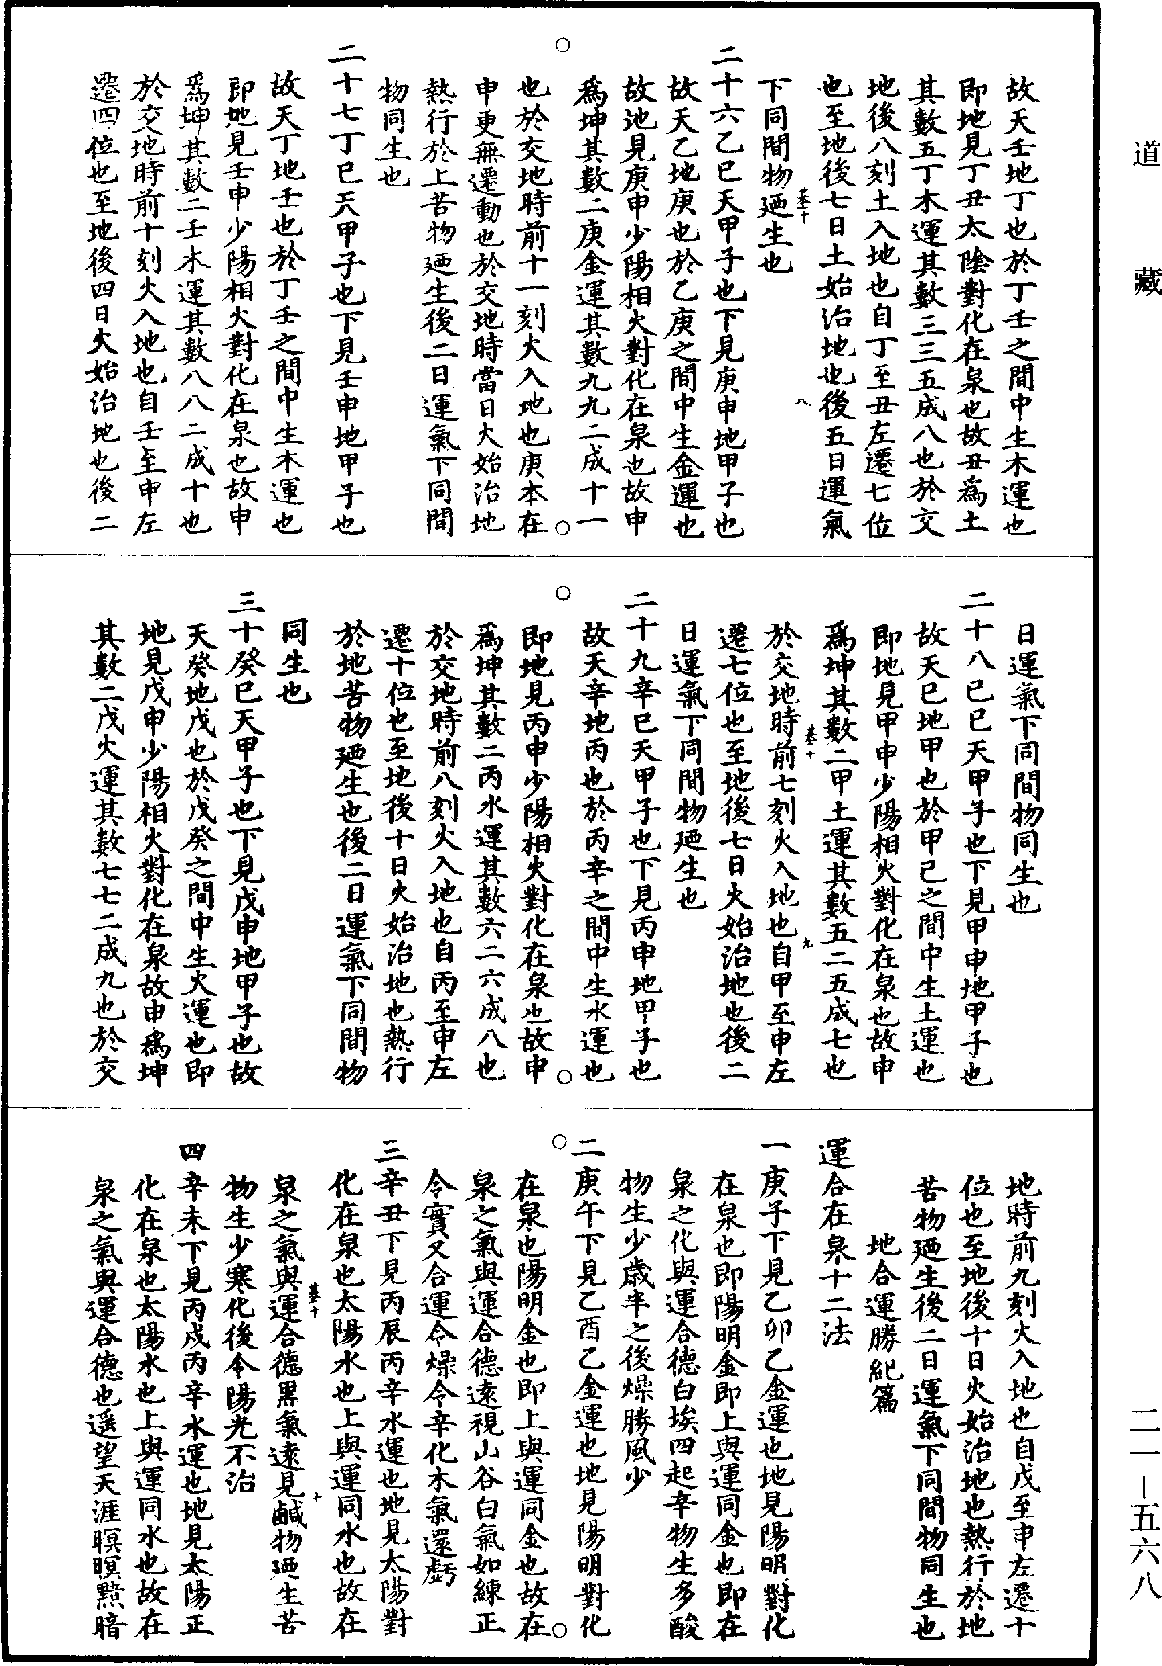 道藏
故天壬地丁也於丁壬之間中生木運也
即地見丁丑太陰對化在泉也故丑為土
其數五丁木運其數三三五成八也於交
地後八刻土入地也自丁至丑左遷七位
也至地後七日土始治地也後五日運氣
下同間物廼生也
二十六乙巳天甲子也下見庚申地甲子也
故天乙地庚也於乙庚之間中生金運也
故地見庚申少陽相火對化在泉也故申
為坤其數二庚金運其數九九二成十一
也於交地時前十一刻火入地也庚本在
申更無遷動也於交地時當日火始治地
熱行於上苦物廼生後二日運氣下同間
物同生也
二十七丁巳天甲子也下見壬申地甲子也
故天丁地壬也於丁壬之間中生木運也
即地見壬申少陽相火對化在泉也故申
為坤其數二壬木運其數八八二成十也
於交地時前十刻火入地也自壬至申左
遷四位也至地後四日火始治地也後二
日運氣下同間物同生也
二十八己巳天甲子也下見甲申地甲子也
故天己地甲也於甲己之間中生土運也
即地見甲申少陽相火對化在泉也故申
為坤其數二甲土運其數五二五成七也
於交地時前七刻火入地也自甲至申左
遷七位也至地後七日火始治地也後二
日運氣下同間物廼生也
二十九辛巳天甲子也下見丙申地甲子也
故天辛地丙也於丙辛之間中生水運也
即地見丙申少陽相火對化在泉也故申
為坤其數二丙水運其數六二六成八也
於交地時前八刻火入地也自丙至申左
遷十位也至地後十日火始治地也熱行
於地苦物廼生也後二日運氣下同間物
同生也
三十癸巳天甲子也下見戊申地甲子也故
天癸地戊也於戊癸之間中生火運也即
地見戊申少陽相火對化在泉故申為坤
其數二戊火運其數七七二成九也於交
地時前九刻火入地也自戊至申左遷十
位也至地後十日火始治地也熱行於地
苦物廼生後二日運氣下同間物同生也
地合運勝紀篇
運合在泉十二法
一庚子下見乙卯乙金運也地見陽明對化
在泉也即陽明金即上與運同金也即在
泉之化與運合德白埃四起辛物生多酸
物生少歲半之後燥勝風少
二庚午下見乙酉乙金運也地見陽明對化
在泉也陽明金也即上與運同金也故在
泉之氣與運合德遠視山谷白氣如練正
令實又合運令燥令辛化木氣還虧
三辛丑下見丙辰丙辛水運也地見太陽對
化在泉也太陽水也上與運同水也故在
泉之氣與運合德黑氣遠見鹹物廼生苦
物生少寒化後令陽光不治
四辛未下見丙戌丙辛水運也地見太陽正
化在泉也太陽水也上與運同水也故在
泉之氣與運合德也遥望天涯暝暝黯暗
卷十
八
卷十
九
卷十
十
二一—五六八